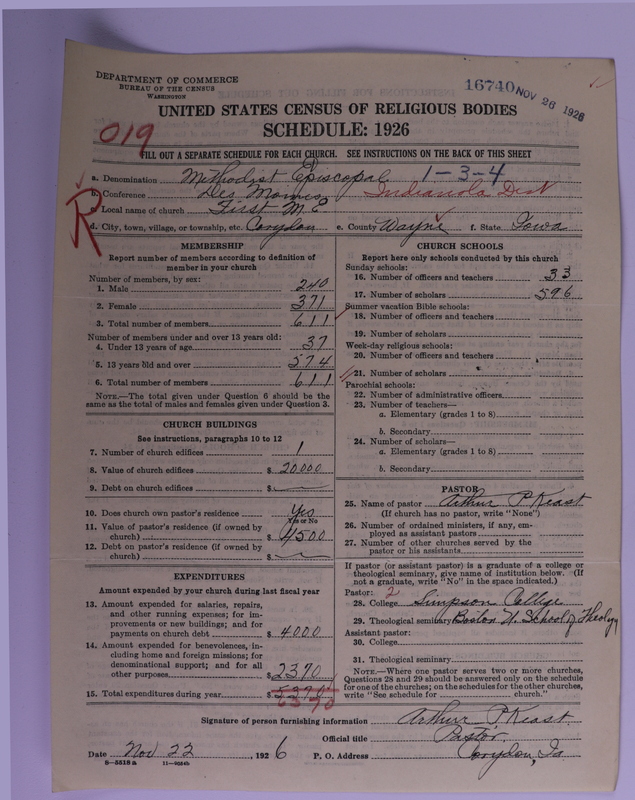 DEPARTMENT OF COMMERCE
BUREAU OF THE CENSUS
WASHINGTON
16740 NOV 26 1926
UNITED STATES CENSUS OF RELIGIOUS BODIES
SCHEDULE: 1926
019
FILL OUT A SEPARATE SCHEDULE FOR EACH CHURCH. SEE INSTRUCTIONS ON THE BACK OF THIS SHEET
a. Denomination Methodist Episcopal 1-3-4
b. Conference Des Moines Indianola Dist
c. Local name of church First M E
R
d. City, town, village, or township, etc. Corydon e. County Wayne f. State Iowa
MEMBERSHIP
Report number of members according to definition of
member in your church
Number of members, by sex:
1. Male 240
2. Female 371
3. Total number of members 611
Number of members under and over 13 years old:
4. Under 13 years of age 37
5. 13 years old and over 574
6. Total number of members 611
NOTE.—The total given under Question 6 should be the
same as the total of males and females given under Question 3.
CHURCH BUILDINGS
See instructions, paragraphs 10 to 12
7. Number of church edifices 1
8. Value of church edifices $ 20,000
9. Debt on church edifices $ —
10. Does church own pastor's residence Yes
Yes or No
11. Value of pastor's residence (if owned by
church) $ 4500
12. Debt on pastor's residence (if owned by
church) $ —
EXPENDITURES
Amount expended by your church during last fiscal year
13. Amount expended for salaries, repairs,
and other running expenses; for im-
provements or new buildings; and for
payments on church debt $ 4000
14. Amount expended for benevolences, in-
cluding home and foreign missions; for
denominational support; and for all
other purposes $ 2390
15. Total expenditures during year $ 5390
6390
CHURCH SCHOOLS
Report here only schools conducted by this church
Sunday schools:
16. Number of officers and teachers 33
17. Number of scholars 596
Summer vacation Bible schools:
18. Number of officers and teachers
19. Number of scholars
Week-day religious schools:
20. Number of officers and teachers
21. Number of scholars
Parochial schools:
22. Number of administrative officers
23. Number of teachers—
a. Elementary (grades 1 to 8)
b. Secondary
24. Number of scholars—
a. Elementary (grades 1 to 8)
b. Secondary
PASTOR
25. Name of pastor Arthur P Keast
(If church has no pastor, write "None")
26. Number of ordained ministers, if any, em-
ployed as assistant pastors
27. Number of other churches served by the
pastor or his assistants
If pastor (or assistant pastor) is a graduate of a college or
theological seminary, give name of institution below. (If
not a graduate, write "No" in the space indicated.)
Pastor: 2
28. College Simpson College
29. Theological seminary Boston U. School of Theology
Assistant pastor:
30. College
31. Theological seminary
NOTE.—Where one pastor serves two or more churches,
Questions 28 and 29 should be answered only on the schedule
for one of the churches; on the schedules for the other churches,
write "See schedule for church."
Signature of person furnishing information Arthur P Keast
Official title Pastor
Date Nov 22, 1926 P. O. Address Corydon, Ia
8—5518 a